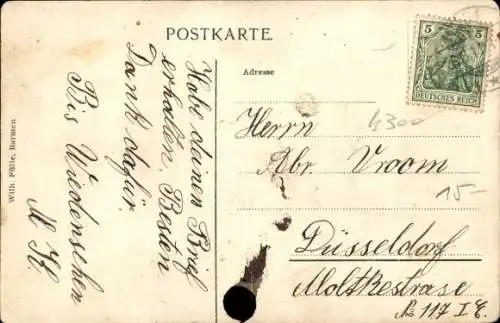 POSTKARTE.
Habe deinen Brief
erhalten. Besten
Dank dafür.
Bis Wiedensehen
M H.
Wilh. Fülle, Barmen
Adresse
5 5
DEUTSCHES REICH
4300
Herrn
Abr. Vroom
15-
Düsseldorf
Moltkestrase
No 117 I E.